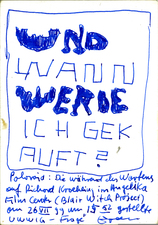 UND
WANN
WERDE
ICH GEK
AUFT?
Polaroid: Die während des Wartens
auf Richard Kriesche im Angelika
Film Center (Blair Witch Project)
am 26 VII 99 um 15 gestellte
Frage